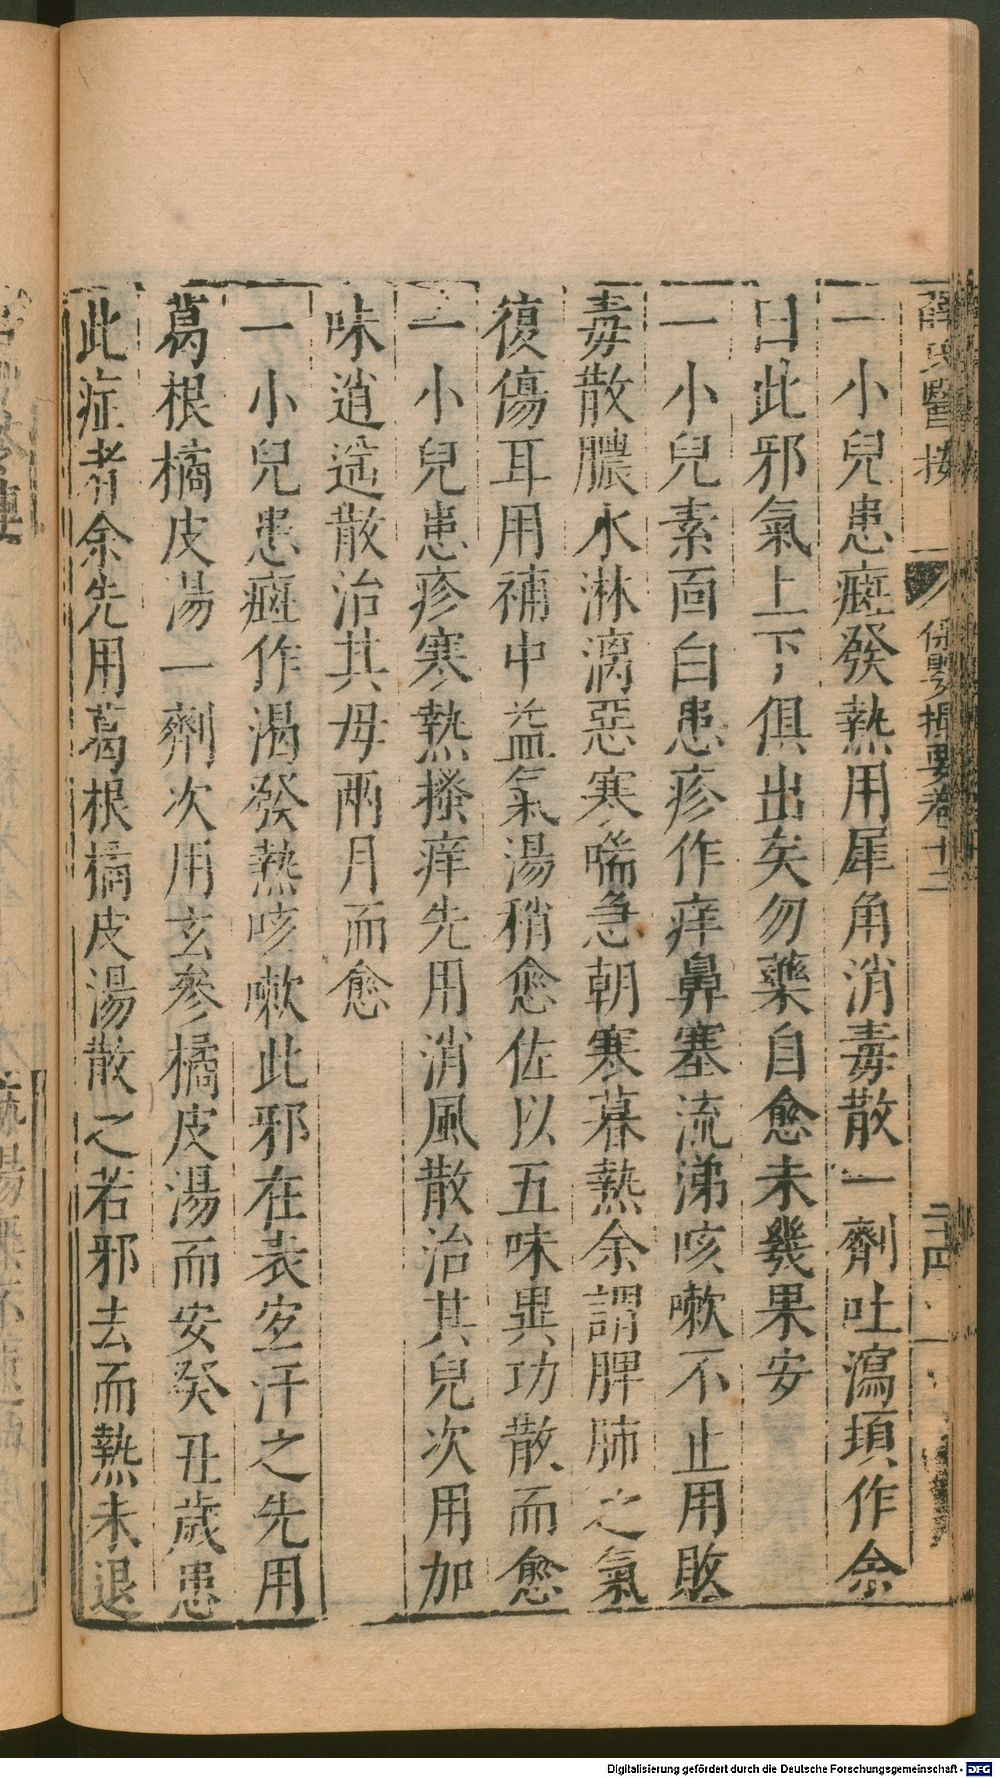 薛氏醫按 保嬰撮要卷十二
一小兒患癍發熱用犀角消毒散一劑吐瀉頃作余
曰此邪氣上下俱出矣勿藥自愈未幾果安
一小兒素面白患疹作痒鼻塞流涕咳嗽不止用敗
毒散膿水淋漓惡寒喘急朝寒暮熱余謂脾肺之氣
復傷耳用補中益氣湯稍愈佐以五味異功散而愈
一小兒患疹寒熱搔痒先用消風散治其兒次用加
味逍遥散治其母兩月而愈
一小兒患癍作渴發熱咳嗽此邪在表宜汗之先用
葛根橘皮湯一劑次用玄參橘皮湯而安癸丑歲患
此症者余先用葛根橘皮湯散之若邪去而熱未退
Digitalisierung gefördert durch die Deutsche Forschungsgemeinschaft - DFG